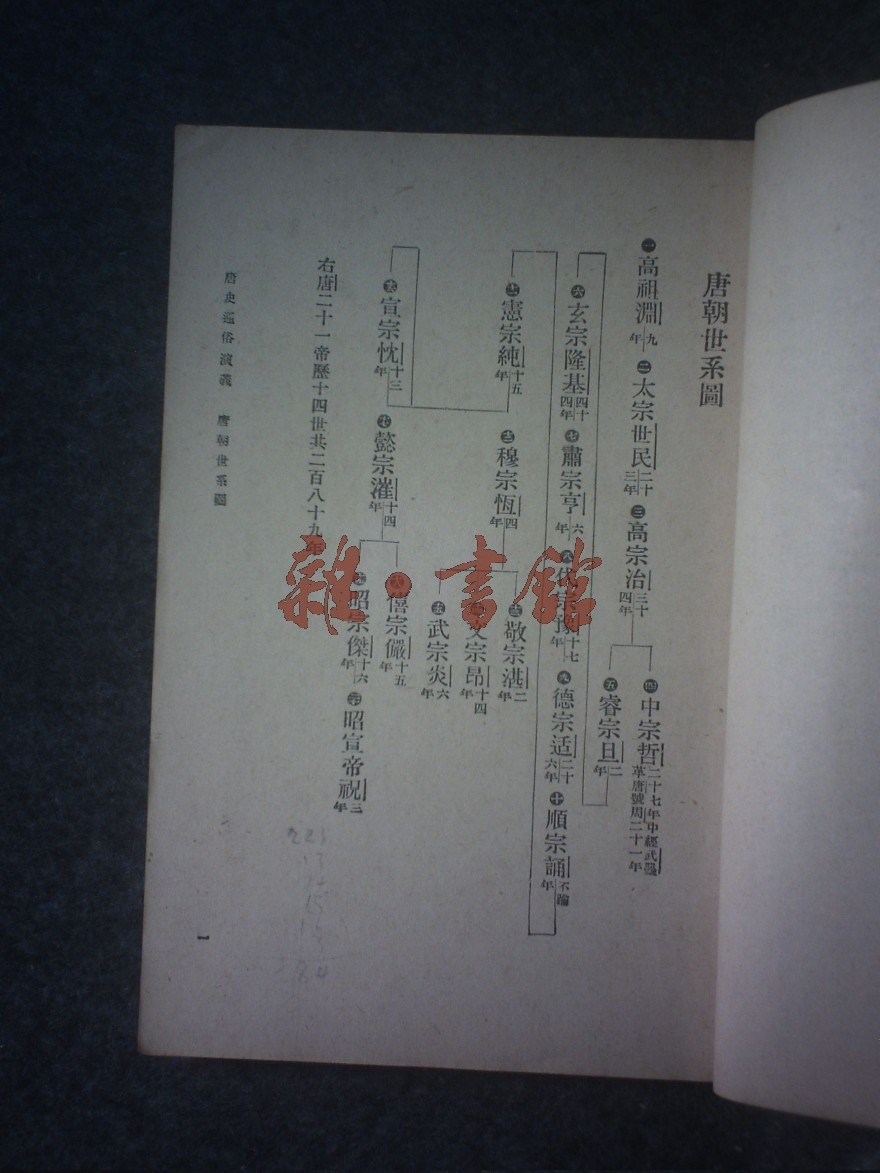 唐朝世系圖
一 高祖淵 九年 二 太宗世民 二十三年 三 高宗治 三十四年
四 中宗哲 二十七年中經武曌革唐號周二十一年
五 睿宗旦 二年
六 玄宗隆基 四十四年 七 肅宗亨 六年 八 代宗豫 十七年 九 德宗适 二十六年 十 順宗誦 不踰年
十一 憲宗純 十五年 十二 穆宗恆 四年
十三 敬宗湛 二年
文宗昂 十四年
十五 武宗炎 六年
宣宗忱 十三年 十七 懿宗漼 十四年
僖宗儼 十五年
昭宗傑 十六年 昭宣帝祝 三年
右唐二十一帝歷十四世共二百八十九年
唐史通俗演義 唐朝世系圖
一
雜·書館